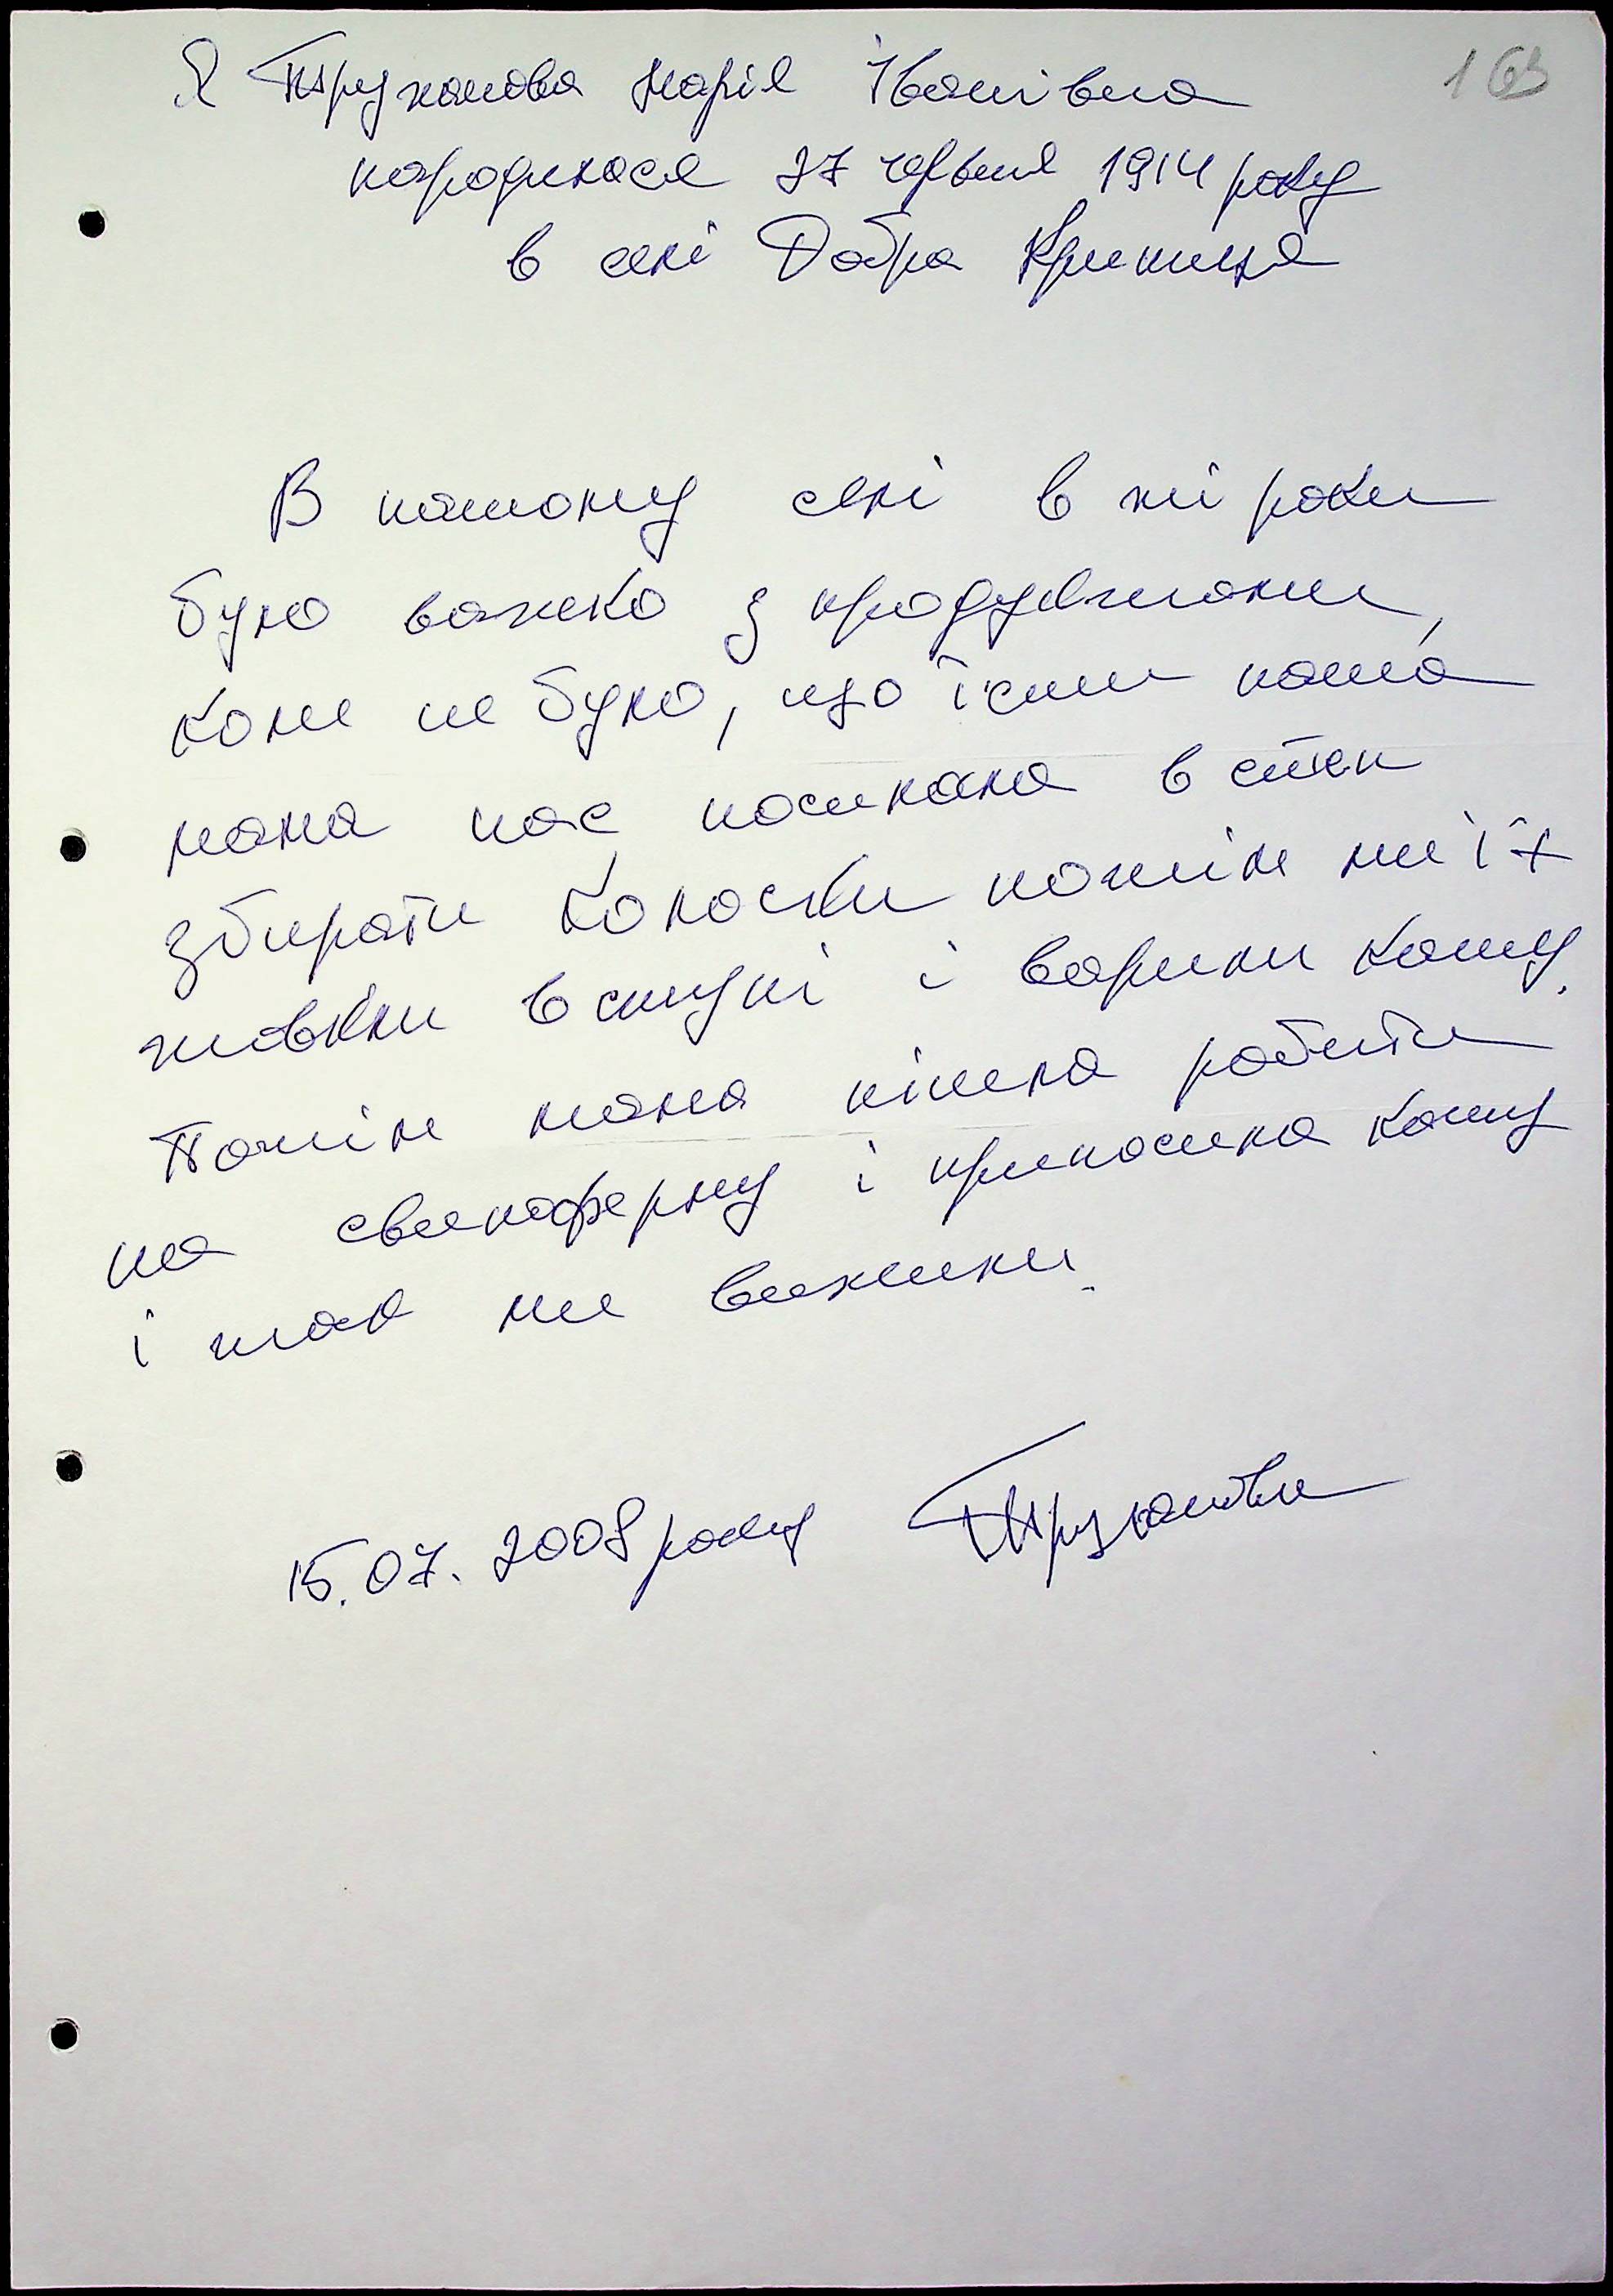 163
Я Труханова Марія Іванівна
народилася 27 червня 1914 року
в селі Добра Криниця
В нашому селі в ті роки
було важко з продуктами,
коли не було, що їсти наша
мама нас посилала в степ
збирати колоски потім ми їх
товкли в ступі і варили кашу.
Потім мама пішла робити
на свиноферму і приносила кашу
і так ми вижили.
15.07.2008 року Труханова